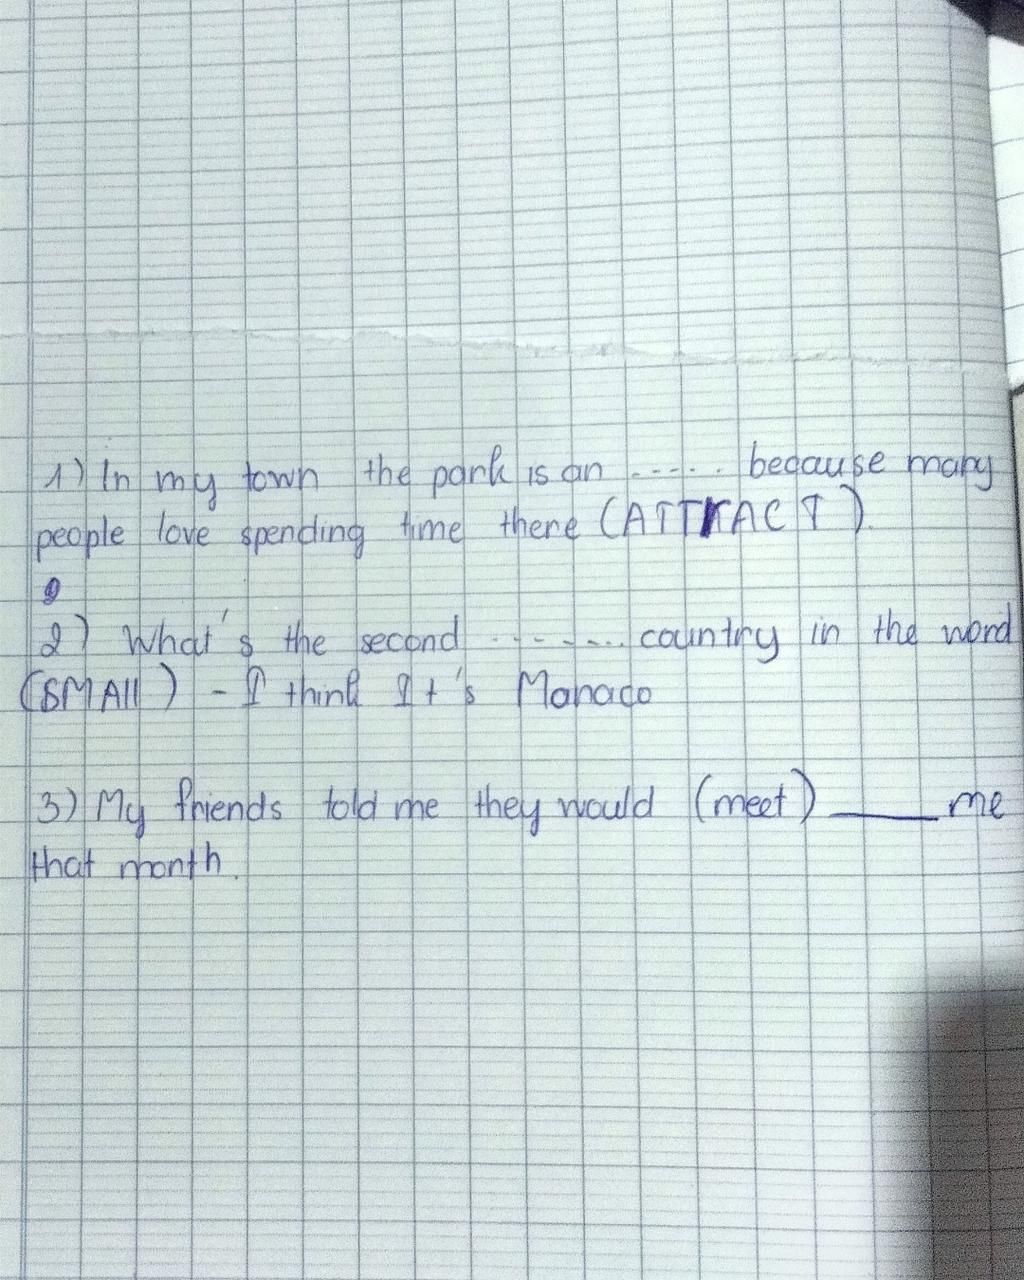 1) In my town the park is an ..... because many
people love spending time there (ATTRACT).
2) What's the second ....... country in the word
(SMAll) - I think It's Monaco
3) My friends told me they would (meet) ______ me
that month.